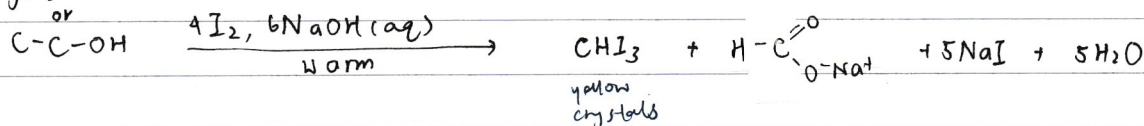 or
C-C-OH 4I2, 6NaOH(aq) warm → CHI3 + H-C=O O-Na+ + 5NaI + 5H2O
yellow
crystals